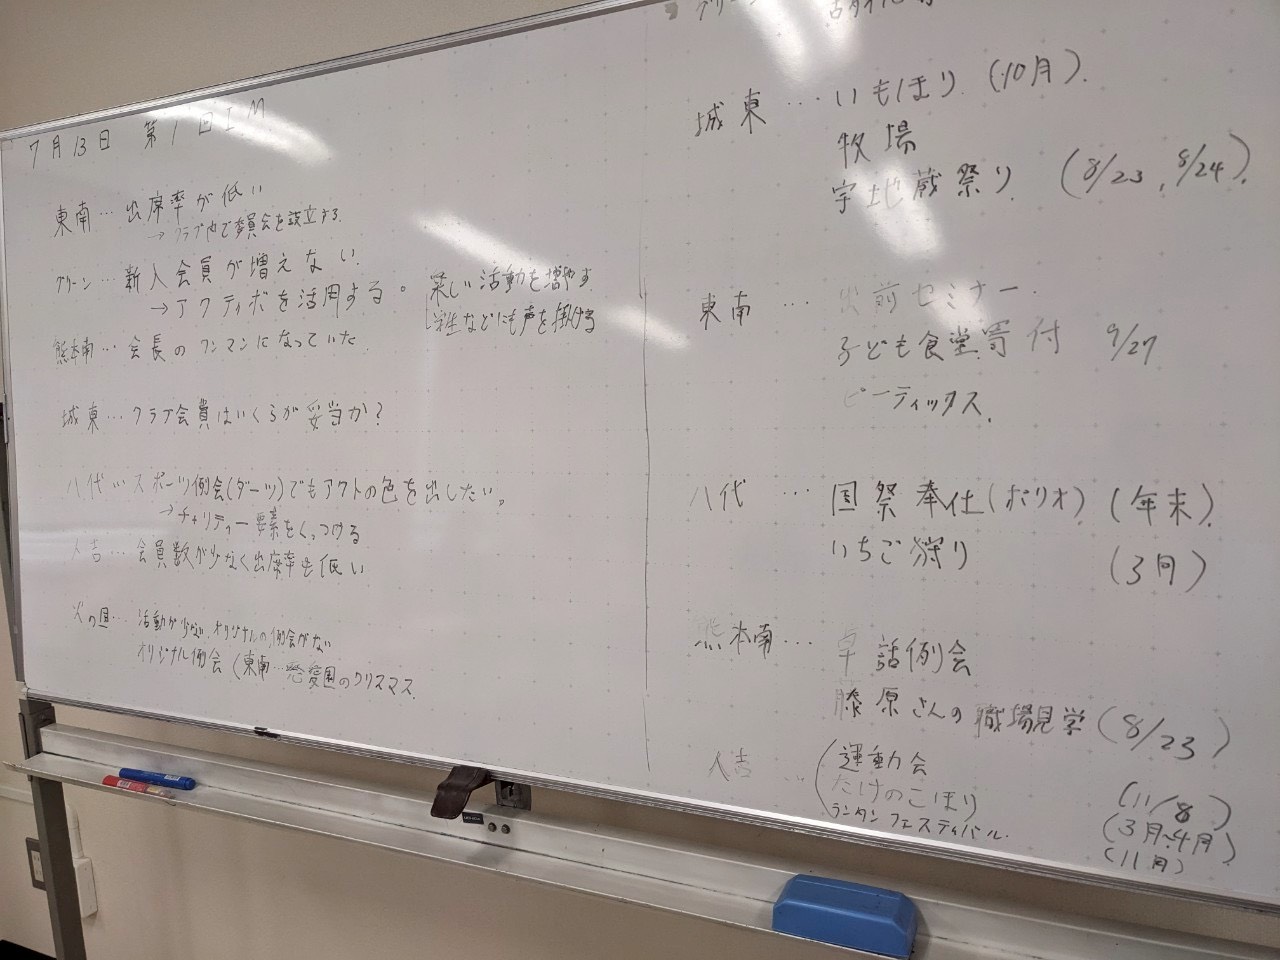 7月13日 第1回IM
東南…出席率が低い
→クラブ内で委員会を設立する
グリーン…新入会員が増えない
→アクティボを活用する。
楽しい活動も増やす
学生などにも声を掛ける
熊本南…会長のワンマンになっていた
城東…クラブ会費はいくらが妥当か?
八代…スポーツ例会(ダーツ)でもアクトの色を出したい。
→チャリティー要素をくっつける
人吉…会員数が少なく出席率も低い
火の国…活動が少ない オリジナルの例会がない
オリジナル例会(東南…慈愛園のクリスマス
グリーン
城東…いもほり (10月).
牧場
宇土地蔵祭り (8/23, 8/24).
東南…出前セミナー.
子ども食堂寄付 9/27
ピーティックス.
八代…国際奉仕(ポリオ) (年末).
いちご狩り (3月)
熊本南…卓話例会
藤原さんの職場見学(8/23)
人吉…運動会 (11/8)
たけのこほり (3月~4月)
ランタンフェスティバル. (11月)